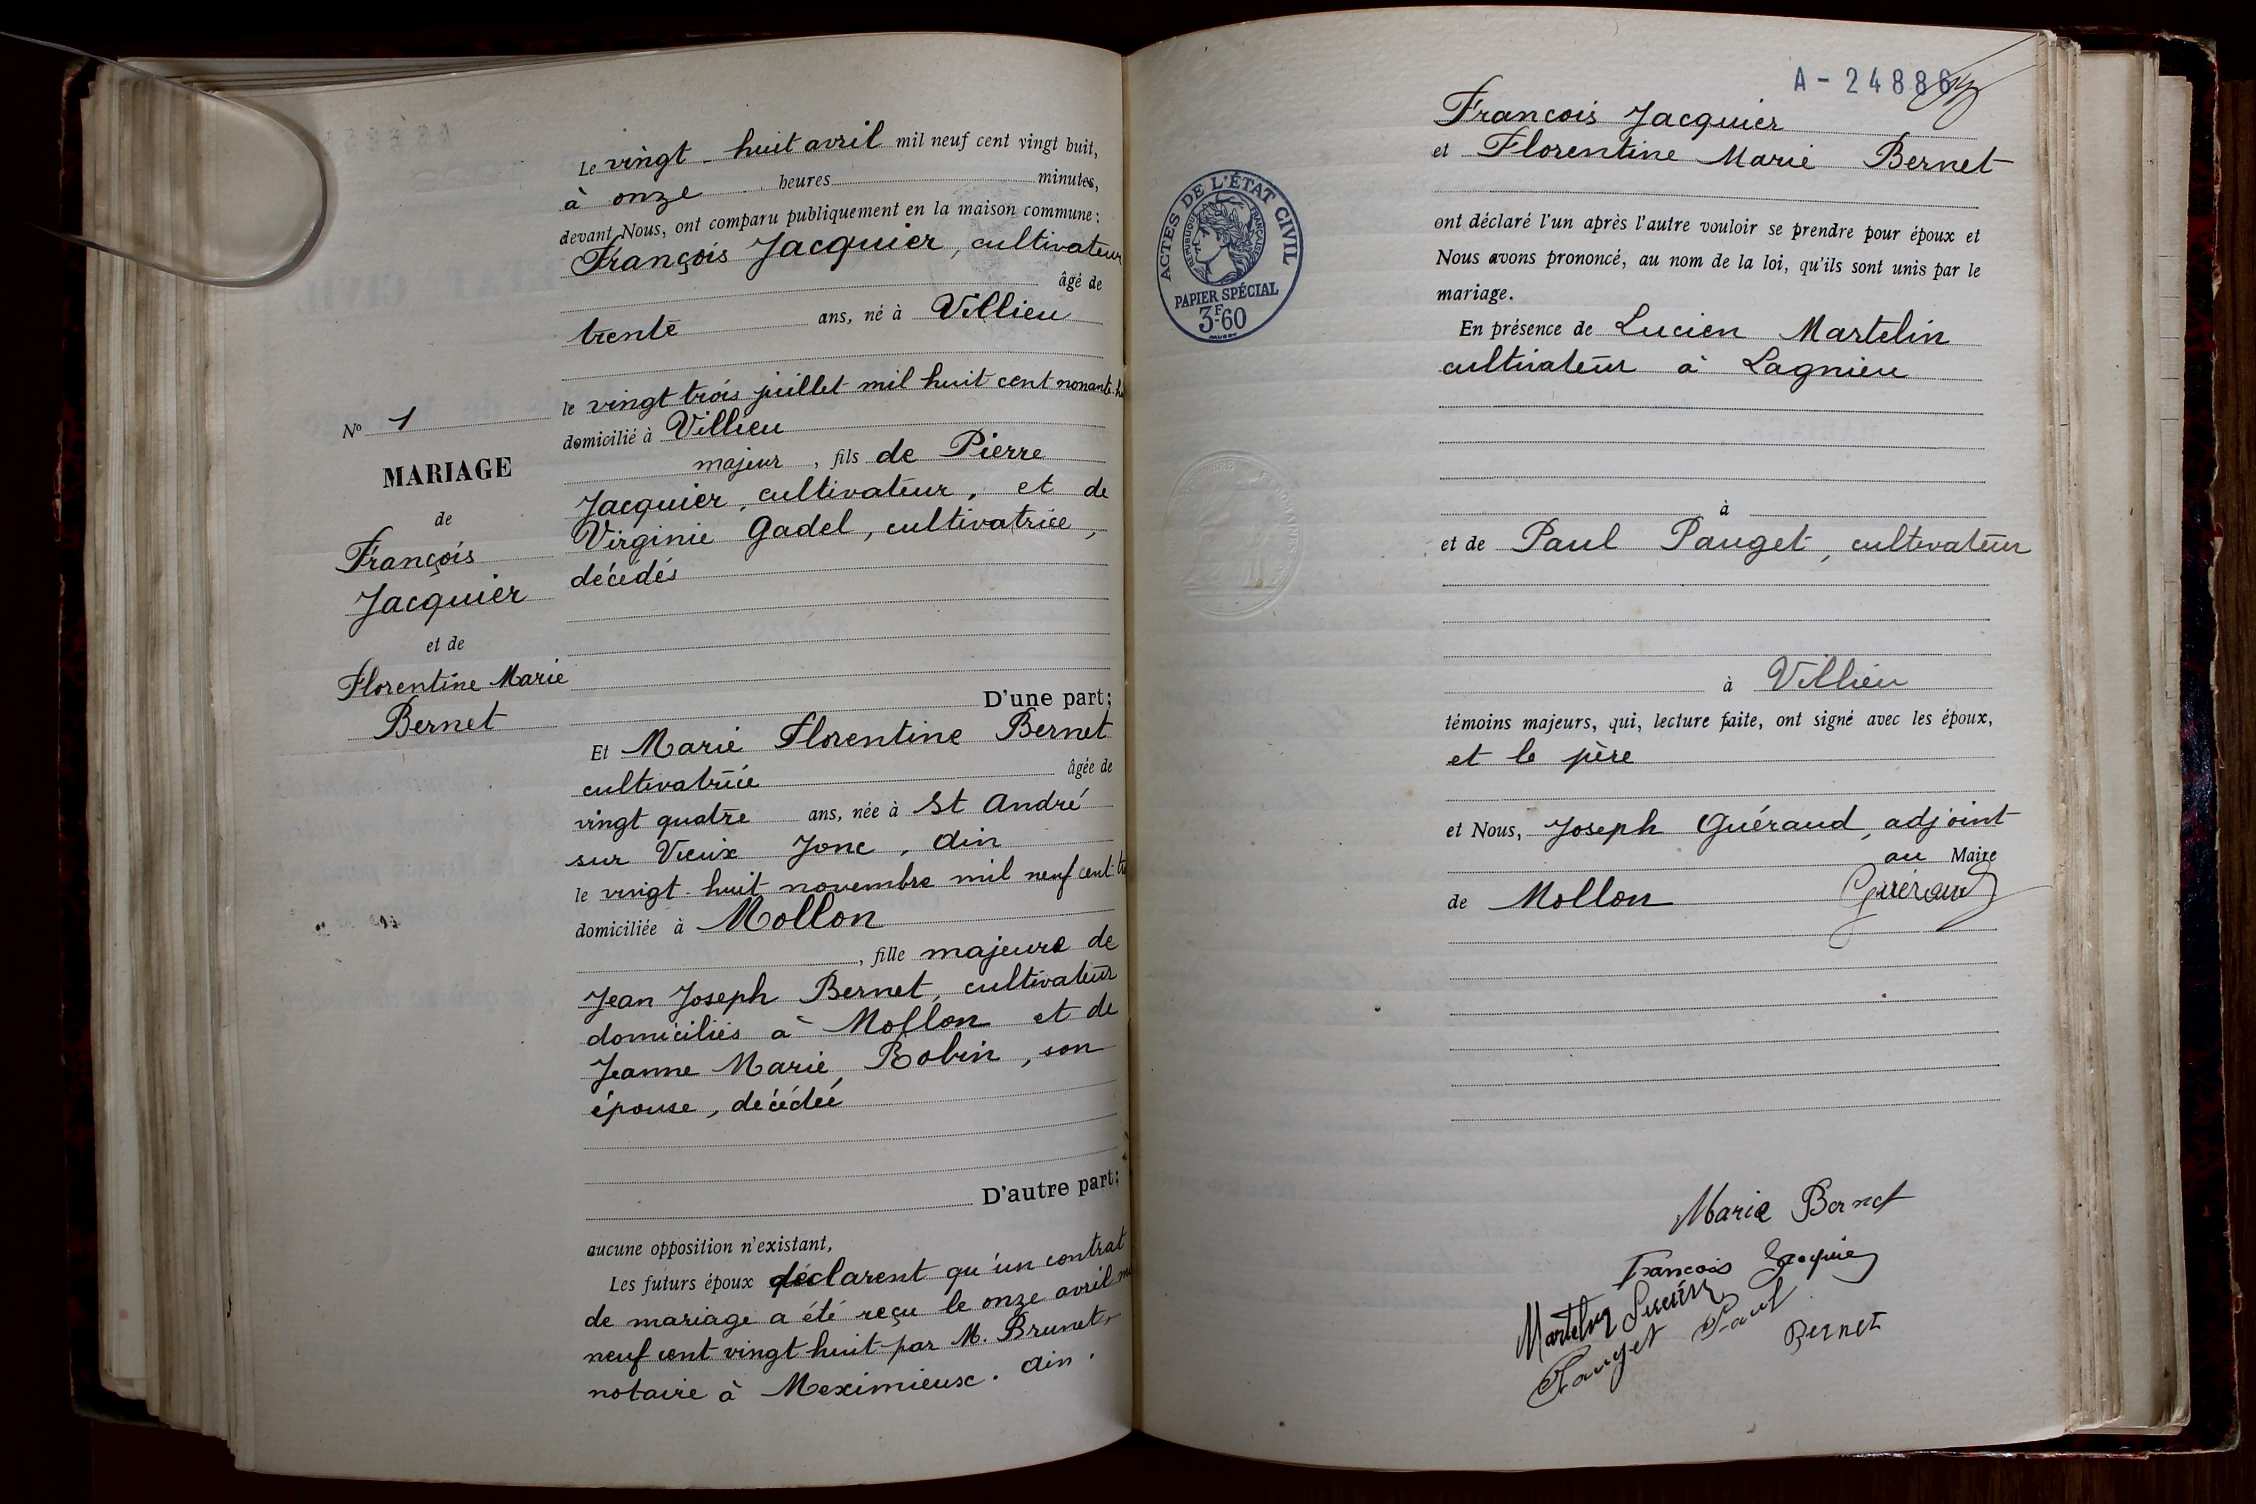 Le vingt-huit avril mil neuf cent vingt huit,
à onze heures minutes,
devant Nous, ont comparu publiquement en la maison commune:
François Jacquier, cultivateur
âgé de
trente ans, né à Villieu
le vingt trois juillet mil huit cent nonante
domicilié à Villieu
majeur, fils de Pierre
Jacquier, cultivateur, et de
Virginie Gadel, cultivatrice,
décédés
No 1
MARIAGE
de
François
Jacquier
et de
Florentine Marie
Bernet
D'une part;
Et Marie Florentine Bernet
cultivatrice âgée de
vingt quatre ans, née à St André
sur Vieux Jonc, Ain
le vingt-huit novembre mil neuf cent
domiciliée à Mollon
, fille majeure de
Jean Joseph Bernet, cultivateur
domiciliés à Mollon et de
Jeanne Marie Robin, son
épouse, décédée
D'autre part;
aucune opposition n'existant,
Les futurs époux déclarent qu'un contrat
de mariage a été reçu le onze avril
neuf cent vingt huit par M. Brunet,
notaire à Meximieux. Ain.
A-24886
Francois Jacquier
et Florentine Marie Bernet
ont déclaré l'un après l'autre vouloir se prendre pour époux et
Nous avons prononcé, au nom de la loi, qu'ils sont unis par le
mariage.
En présence de Lucien Martelin
cultivateur à Lagnieu
à
et de Paul Pauget, cultivateur
à Villieu
témoins majeurs, qui, lecture faite, ont signé avec les époux,
et le père
et Nous, Joseph Guéraud, adjoint
au Maire
de Mollon Guéraud
ACTES DE L'ÉTAT CIVIL
RÉPUBLIQUE FRANÇAISE
PAPIER SPÉCIAL
3F60
Marie Bernet
Francois Jacquier
Martelin Lucien
Pauget Paul
Bernet